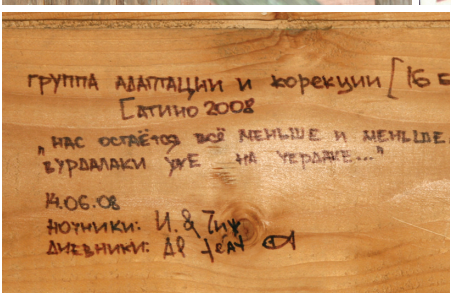 ГРУППА АДАПТАЦИИ И КОРЕКЦИИ [16 Б
САТИНО 2008
„НАС ОСТАЁТСЯ ВСЁ МЕНЬШЕ И МЕНЬШЕ,
ВУРДАЛАКИ УЖЕ НА ЧЕРДАКЕ..."
14.06.08
НОЧНИКИ: И. & Чиж
ДНЕВНИКИ: